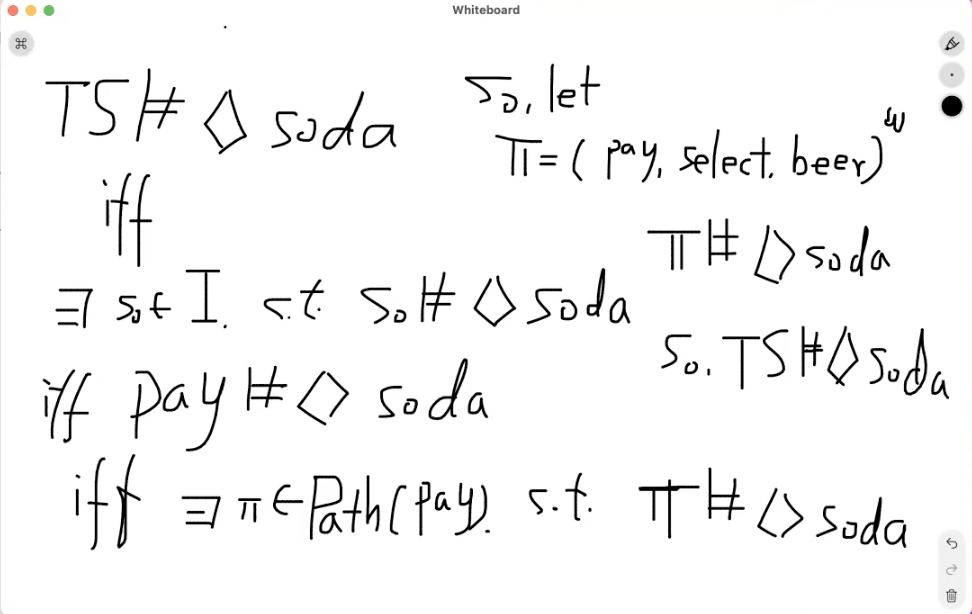 Whiteboard
TS ⊭ ◇ soda
iff
∃ s₀ ∈ I. s.t. s₀ ⊭ ◇ soda
iff pay ⊭ ◇ soda
iff ∃ π ∈ Path(pay). s.t. π ⊭ ◇ soda
So, let
π = ( pay, select, beer)^ω
π ⊭ ◇ soda
So. TS ⊭ ◇ soda